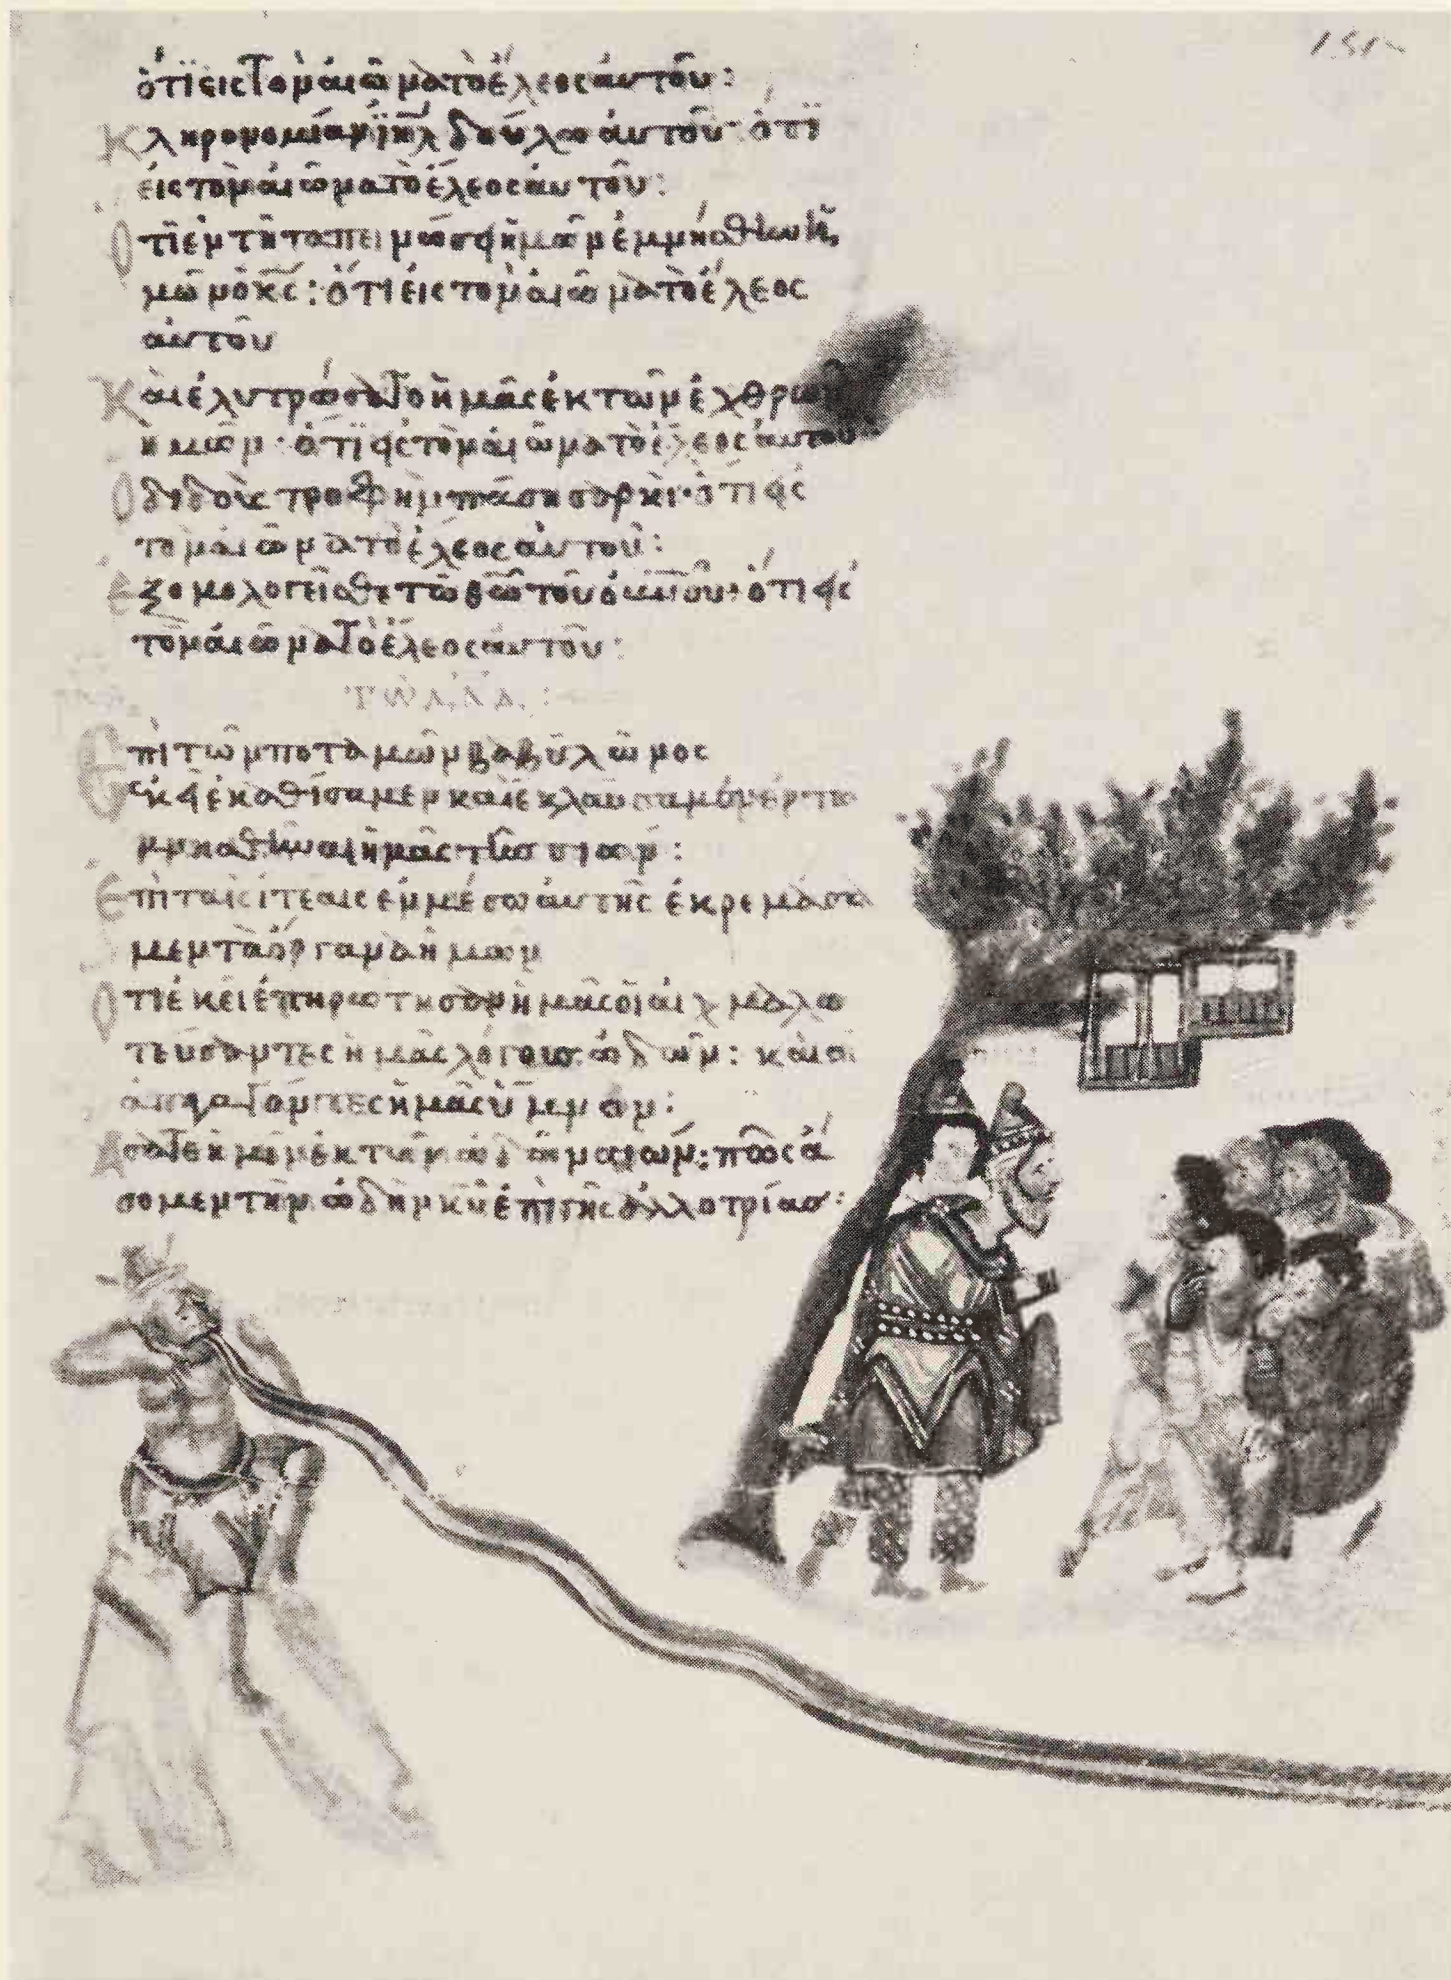 ὅτι εἰς τὸν αἰῶνα τὸ ἔλεος αὐτοῦ:
Κληρονομίαν ϊηλ δούλω αὐτοῦ· ὅτι
εἰς τὸν αἰῶνα τὸ ἔλεος αὐτοῦ:
Ὅτι ἐν τῆ ταπεινώσει ἡμῶν ἐμνήσθη ἡ
μῶν ὁ κς: ὅτι εἰς τὸν αἰῶνα τὸ ἔλεος
αὐτοῦ
Καὶ ἐλυτρώσατο ἡμᾶς ἐκ τῶν ἐχθρῶν
ἡμῶν· ὅτι εἰς τὸν αἰῶνα τὸ ἔλεος αὐτοῦ
Ὁ διδοὺς τροφὴν πάση σαρκί· ὅτι εἰς
τὸν αἰῶνα τὸ ἔλεος αὐτοῦ:
Ἐξομολογεῖσθε τῶ θῶ τοῦ οὐνοῦ· ὅτι εἰς
τὸν αἰῶνα τὸ ἔλεος αὐτοῦ:
Ἐπὶ τῶν ποταμῶν βαβυλῶνος
ἐκεῖ ἐκαθίσαμεν καὶ ἐκλαύσαμεν ἐν τῶ
μνησθῆναι ἡμᾶς τῆς σιών:
Ἐπὶ ταῖς ἰτέαις ἐν μέσω αὐτῆς ἐκρεμάσα
μεν τὰ ὄργανα ἡμῶν
Ὅτι ἐκεῖ ἐπηρώτησαν ἡμᾶς οἱ αἰχμαλω
τεύσαντες ἡμᾶς λόγους ὠδῶν: καὶ οἱ
ἀπαγαγόντες ἡμᾶς ὕμνον:
Ἄσατε ἡμῖν ἐκ τῶν ὠδῶν σιών: πῶς ἄ
σομεν τὴν ὠδὴν κυ ἐπὶ γῆς ἀλλοτρίας: